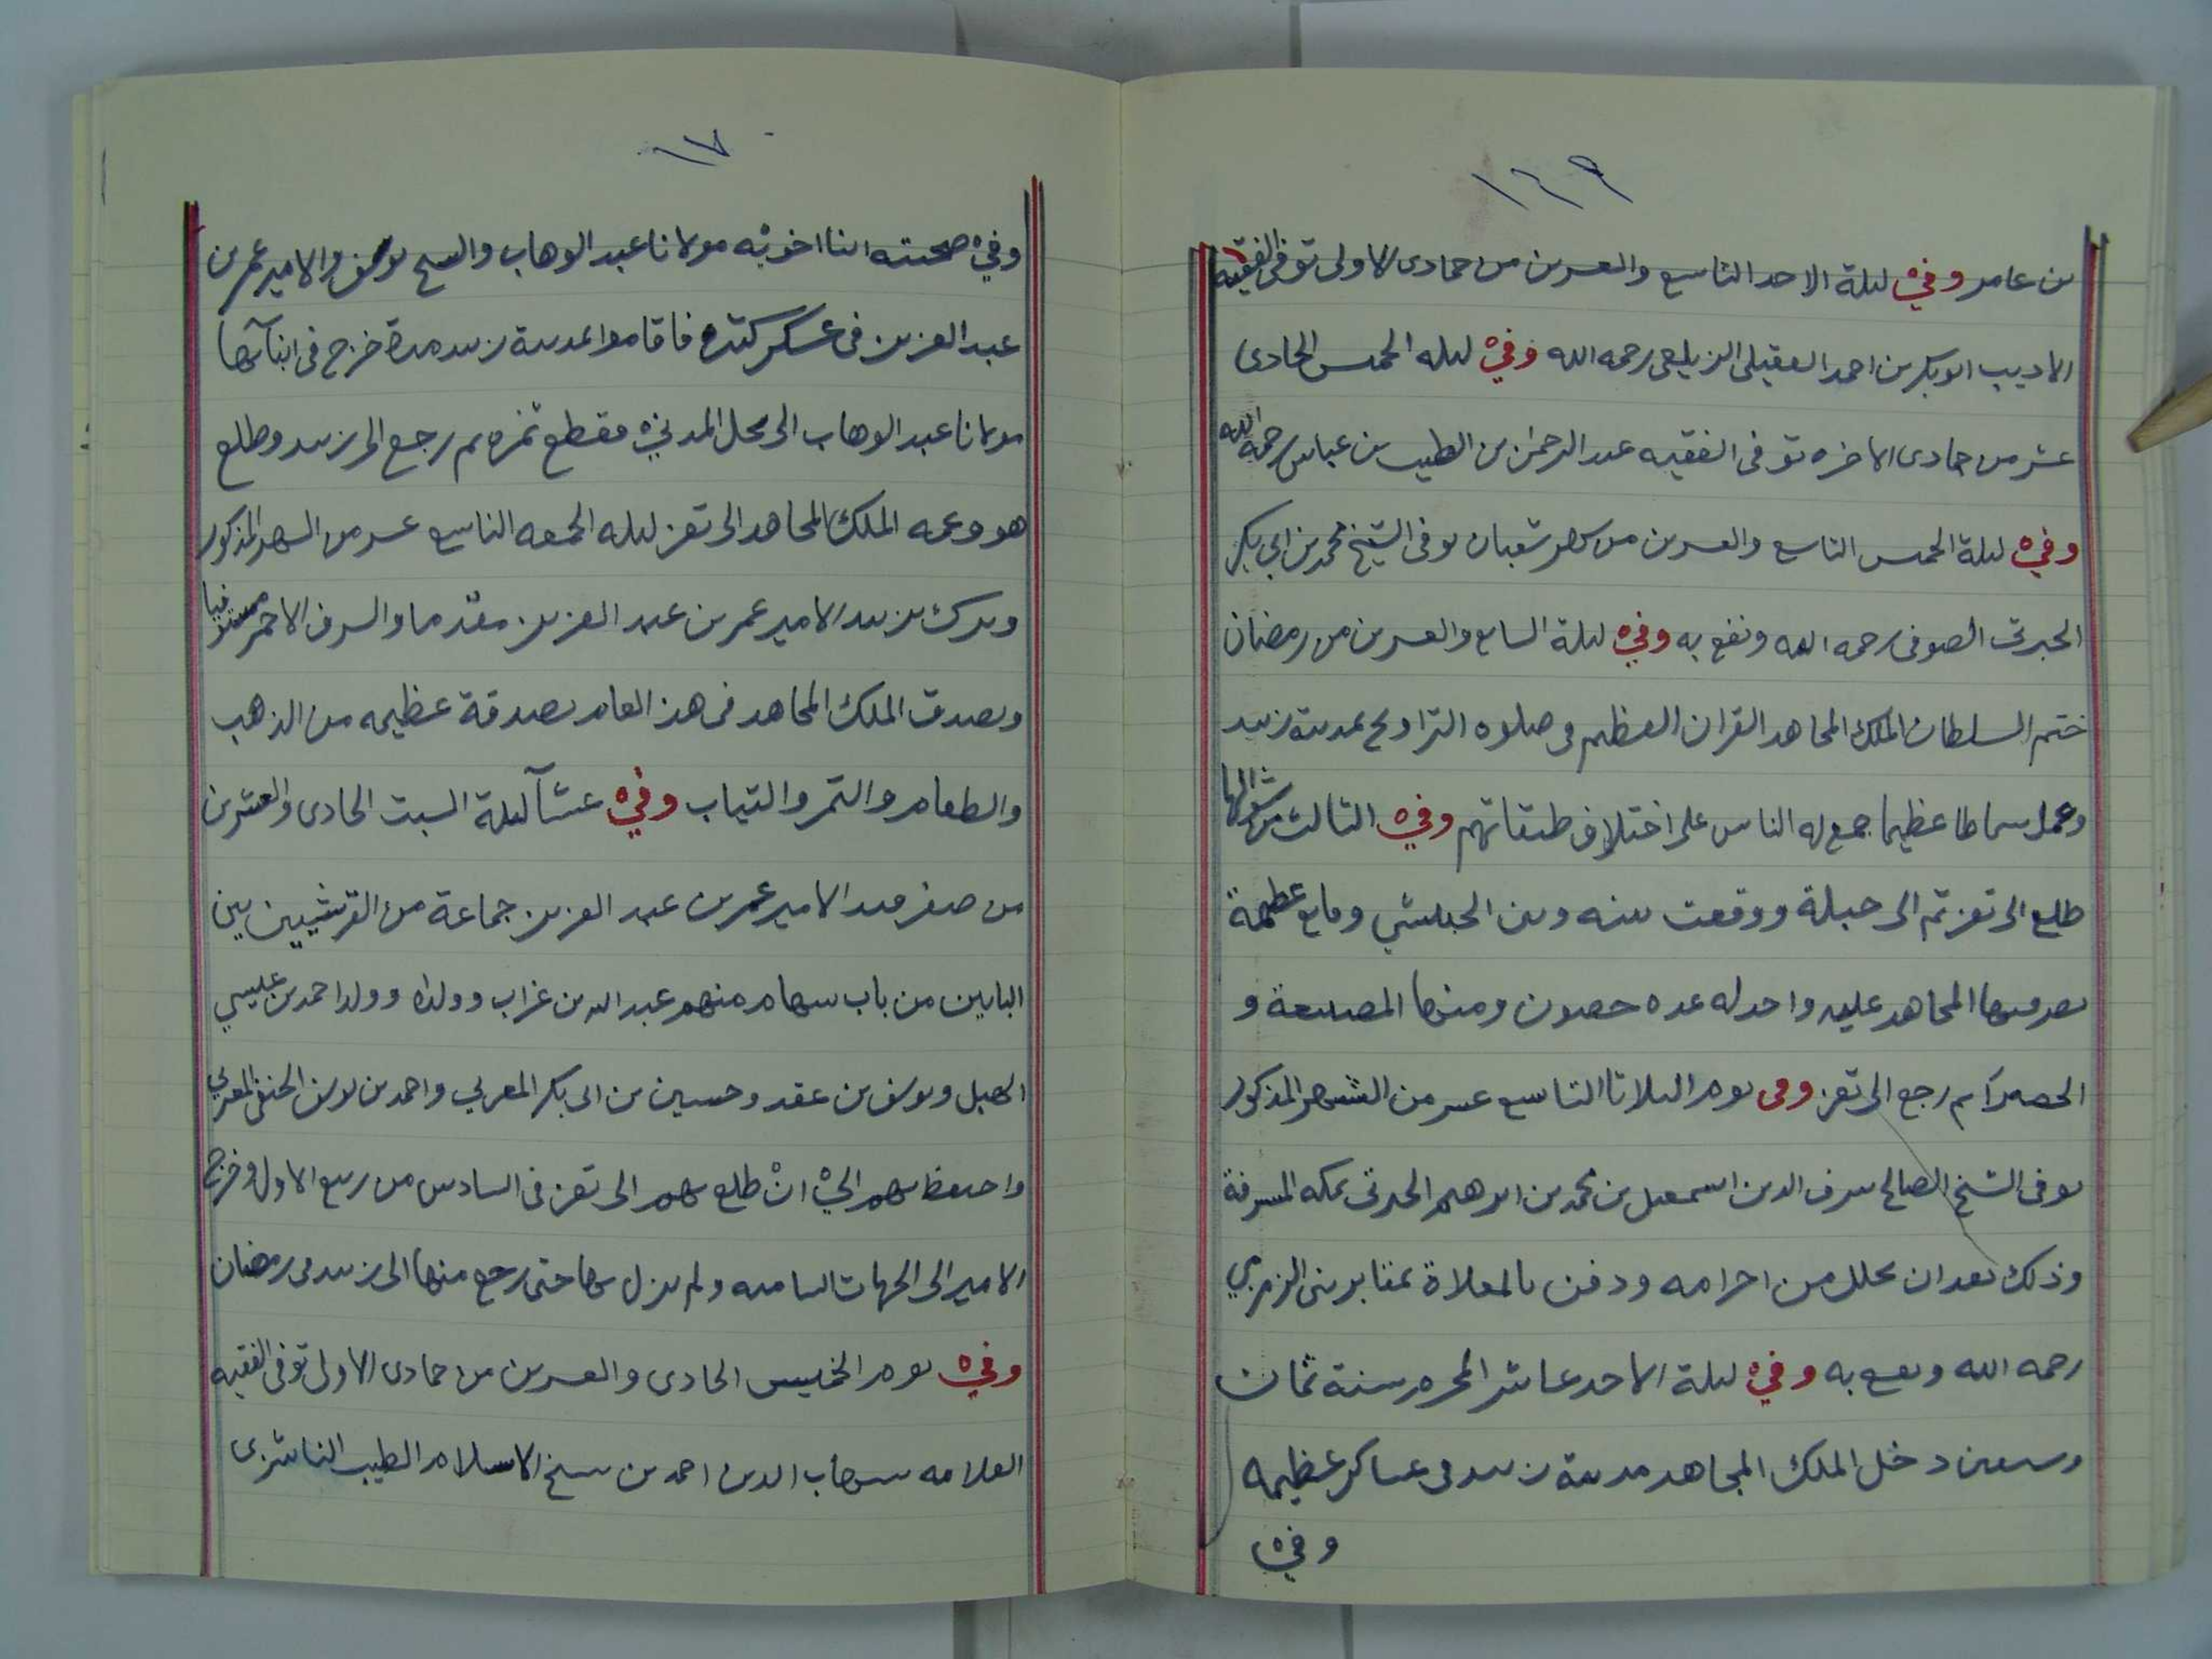 ١٦٩
بن عامر وفي ليلة الاحد التاسع والعشرين من جمادى الاولى توفى الفقيه
الاديب ابو بكر بن احمد العقيلى الزيلعى رحمه الله وفي ليله الخميس الحادى
عشر من جمادى الاخره توفى الفقيه عبد الرحمن بن الطيب بن عباس رحمه الله
وفي ليلة الخميس التاسع والعشرين من شهر شعبان توفى الشيخ محمد بن ابي بكر
الجبرتى الصوفى رحمه الله ونفع به وفي ليلة السابع والعشرين من رمضان
ختم السلطان الملك المجاهد القران العظيم فى صلوه التراويح بمدينة زبيد
وعمل سماطا عظيما جمع له الناس على اختلاف طبقاتهم وفي الثالث من شوالها
طلع الى تعز ثم الى جبلة ووقعت بينه وبين الحبيشي وقايع عظيمة
نصر فيها المجاهد عليه واخذ له عده حصون ومنها المصنعة و
ثم رجع الى تعز وفى يوم الثلاثا التاسع عشر من الشهر المذكور
توفى الشيخ الصالح شرف الدين اسمعيل بن محمد بن ابرهيم الجبرتى بمكه المشرفة
وذلك بعد ان تحلل من احرامه ودفن بالمعلاة بمقابر بنى الزمزمي
رحمه الله ونفع به وفي ليلة الاحد عاشر المحرم سنة ثمان
وسبعين دخل الملك المجاهد مدينة زبيد فى عساكر عظيمه
وفي
١٧٠
وفي صحبته ابنا اخويه مولانا عبد الوهاب والشيخ يوسف والامير عمر بن
عبد العزيز فى عسكر كثيره فاقاموا بمدينة زبيد مدة خرج فى اثنآئها
مولانا عبد الوهاب الى محل المدني فقطع ثمره ثم رجع الى زبيد وطلع
هو وعمه الملك المجاهد الى تعز ليله الجمعه التاسع عشر من الشهر المذكور
وترك بزبيد الامير عمر بن عبد العزيز مقدما والشرف الاحمر مستوفيا
وتصدق الملك المجاهد فى هذا العام بصدقة عظيمه من الذهب
والطعام والتمر والثياب وفي عشآ ليلة السبت الحادى والعشرين
من صفر قيد الامير عمر بن عبد العزيز جماعة من القرشيين بين
البابين من باب سهام منهم عبد الله بن غراب وولداه وولد احمد بن عيسي
الهبل ويوسف بن عقد وحسين بن ابى بكر المعزبي واحمد بن يوسف الحنفى المعزبي
واحتفظ بهم الي ان طلع بهم الى تعز فى السادس من ربيع الاول وخرج
الامير الى الجهات الشاميه ولم يزل بها حتى رجع منها الى زبيد فى رمضان
وفي يوم الخميس الحادى والعشرين من جمادى الاولى توفى الفقيه
العلامه شهاب الدين احمد بن شيخ الاسلام الطيب الناشرى